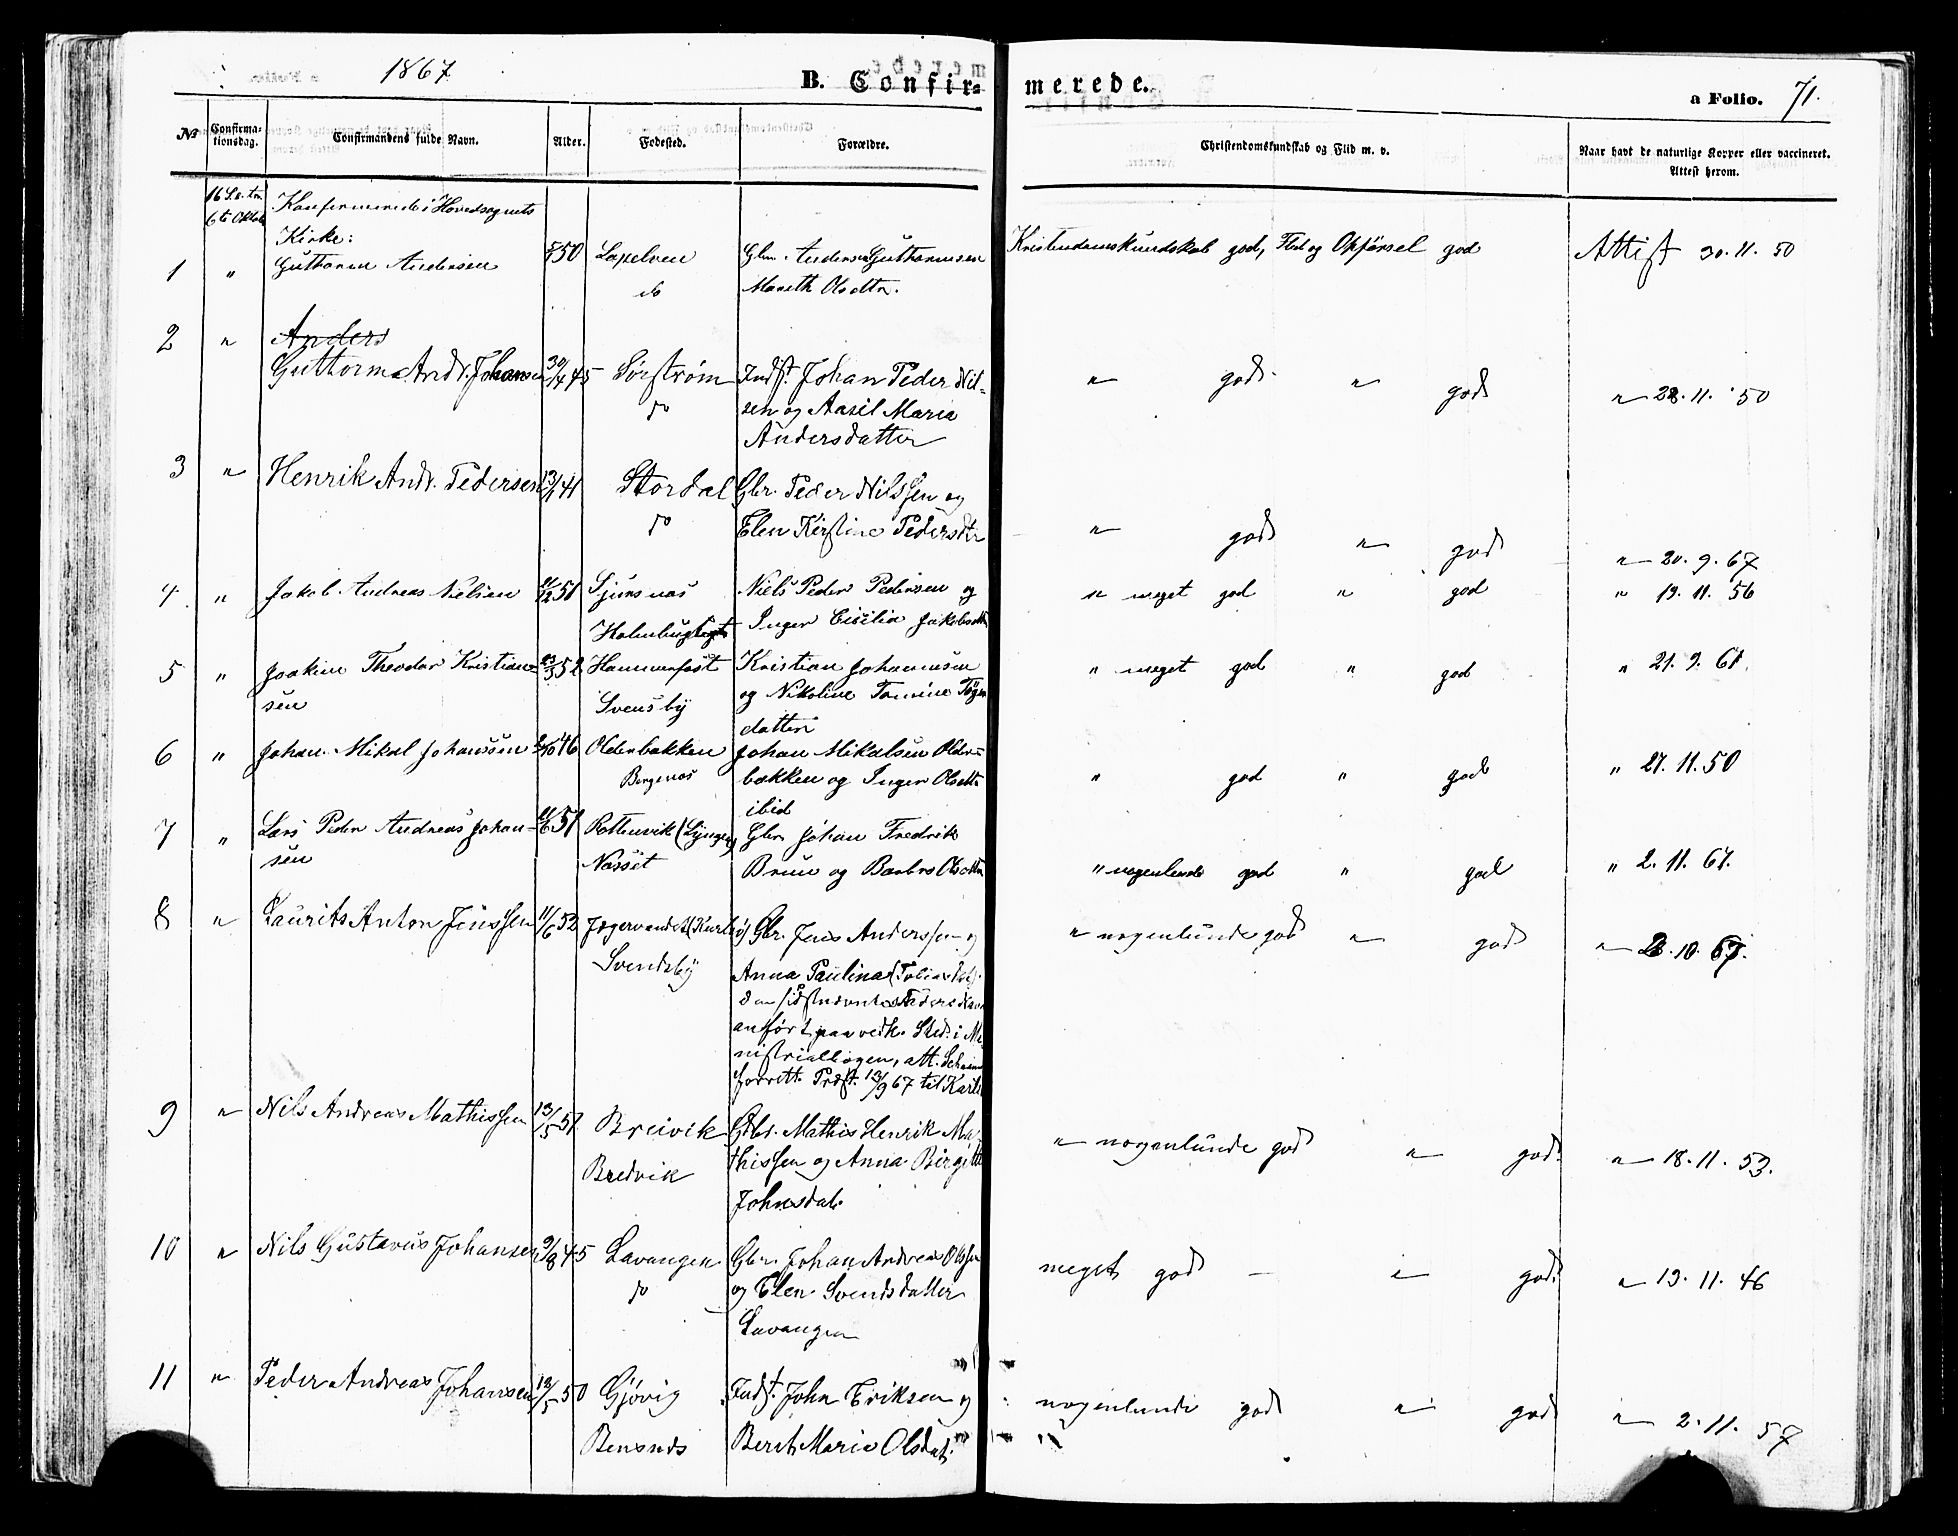 1867
B. Confir- merede.
a Folio. 71.
No Confirmationsdag. Confirmandens fulde Navn. Alder. Fødested. Forældre. Christendomskundskab og Flid m. v. Naar havt de naturlige Kopper eller vaccineret. Attest herom.
16 S. e. Tr. Konfirmerede i Hovedsognets
6te Oktob Kirke:
1 " Guttorm Andersen 50 Laxelven Gbr. Anders Guttormsen Kristendomskundskab god, Flid og Opførsel god Attest 30.11.50
do Mareth Olsdtr.
2 " Anders
Guttorm Andr. Johansen 30/4 45 Sørstrøm Indst. Johan Peder Nil- " god " god " 28.11.50
do sen og Aasil Maria
Andersdatter
3 " Henrik Andr. Pedersen 13/1 41 Stordal Gbr. Peder Nilssen og
do Elen Kirstine Pedersdtr " god " god " 20.9.67
4 " Jakob Andreas Nielsen 11/12 51 Sjursnæs Niels Peder Pedersen og " meget god " god " 19.11.56
Holmbugt Inger Cicilia Jakobsdtr
5 " Joakim Theodor Kristian- 23/3 52 Hammerfest Kristian Johannesen " meget god " god " 21.9.61.
sen Svensby og Nikoline Tomine
datter
6 " Johan Mikal Johanssen 2/10 46 Olderbakken Johan Mikalsen Older- " god " god " 27.11.50
Bergenæs bakken og Inger Olsdtr
ibid
7 " Lars Peder Andreas Johan- 11/6 51 Rottenvik (Lyngen) Gbr. Johan Fredrik
sen Næsset Bruun og Barbro Olsdtr " nogenlunde god " god " 2.11.67.
8 " Laurits Anton Jenssen 11/6 52 Jægervandet (Karlsø) Gbr. Jens Anderssen og " nogenlunde god " god " 2.10.67.
Svendsby Anna Paulina (Tobiasdat)
den sidstnævntes Faders Navn
anført paa vedk. Sted i Mi-
nistrialbogen, att.
Præst. 13/9 67 til Karls
9 " Nils Andreas Mathissen 13/5 51 Breivik Gbr. Mathis Henrik Ma- " nogenlunde god " god " 18.11.53.
Bredvik thissen og Anna Birgitte
Johnsdat.
10 " Nils Gustavus Johansen 9/8 45 Lavangen Gbr. Johan Andreas Olssen meget god " god " 13.11.46
do og Elen Svendsdatter
Lavangen
11 " Peder Andreas Johansen 13/5 50 Gjøvig Indst. John Eriksen og nogenlunde god " god " 2.11.57
Bensnes Berit Maria Olsdat.